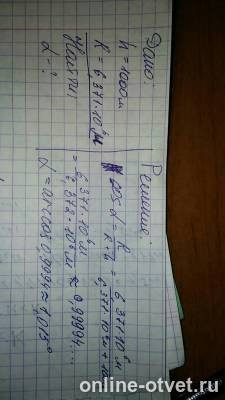 Дано:
h = 1000м
R = 6,371·10⁶м
Найти
α - ?
Решение:
cos α = R/(R+h) = 6,371·10⁶м/(6,371·10⁶м+10
= 6,371·10⁶м/6,372·10⁶м ≈ 0,99994...
α = arccos 0,9994 ≈ 1,015°
online-otvet.ru